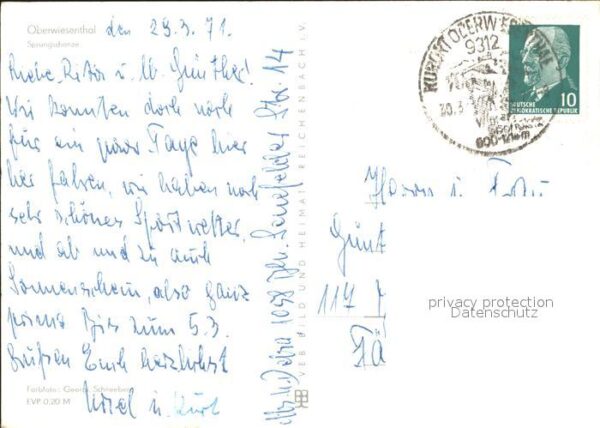 Oberwiesenthal
Sprungschanze
den 29.3.71.
Liebe u. Günther!
Wir konnten doch noch
für ein paar Tage hier
her fahren, wir haben noch
sehr schönes Sportwetter,
und ab und zu auch
Sonnenschein, also ganz
prima Bis zum 5.3.
Grüßen Euch herzlichst
Ursel u. Kurt
Farbfoto: Georg Schneeberg
EVP 0,20 M
1058 Bln. Str. 14
VEB BILD UND HEIMAT REICHENBACH i. V.
KURORT OBERWIESENTHAL
9312
30.3.
DEUTSCHE
DEMOKRATISCHE REPUBLIK
10
Herrn u. Frau
Günt
117
privacy protection
Datenschutz